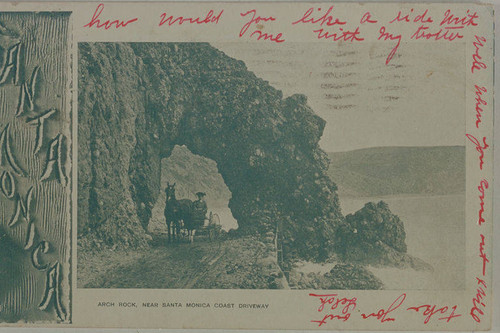 SANTA
MONICA
how would you like a ride with
me with my trotter
Well when you come out I will
take you out
ARCH ROCK, NEAR SANTA MONICA COAST DRIVEWAY